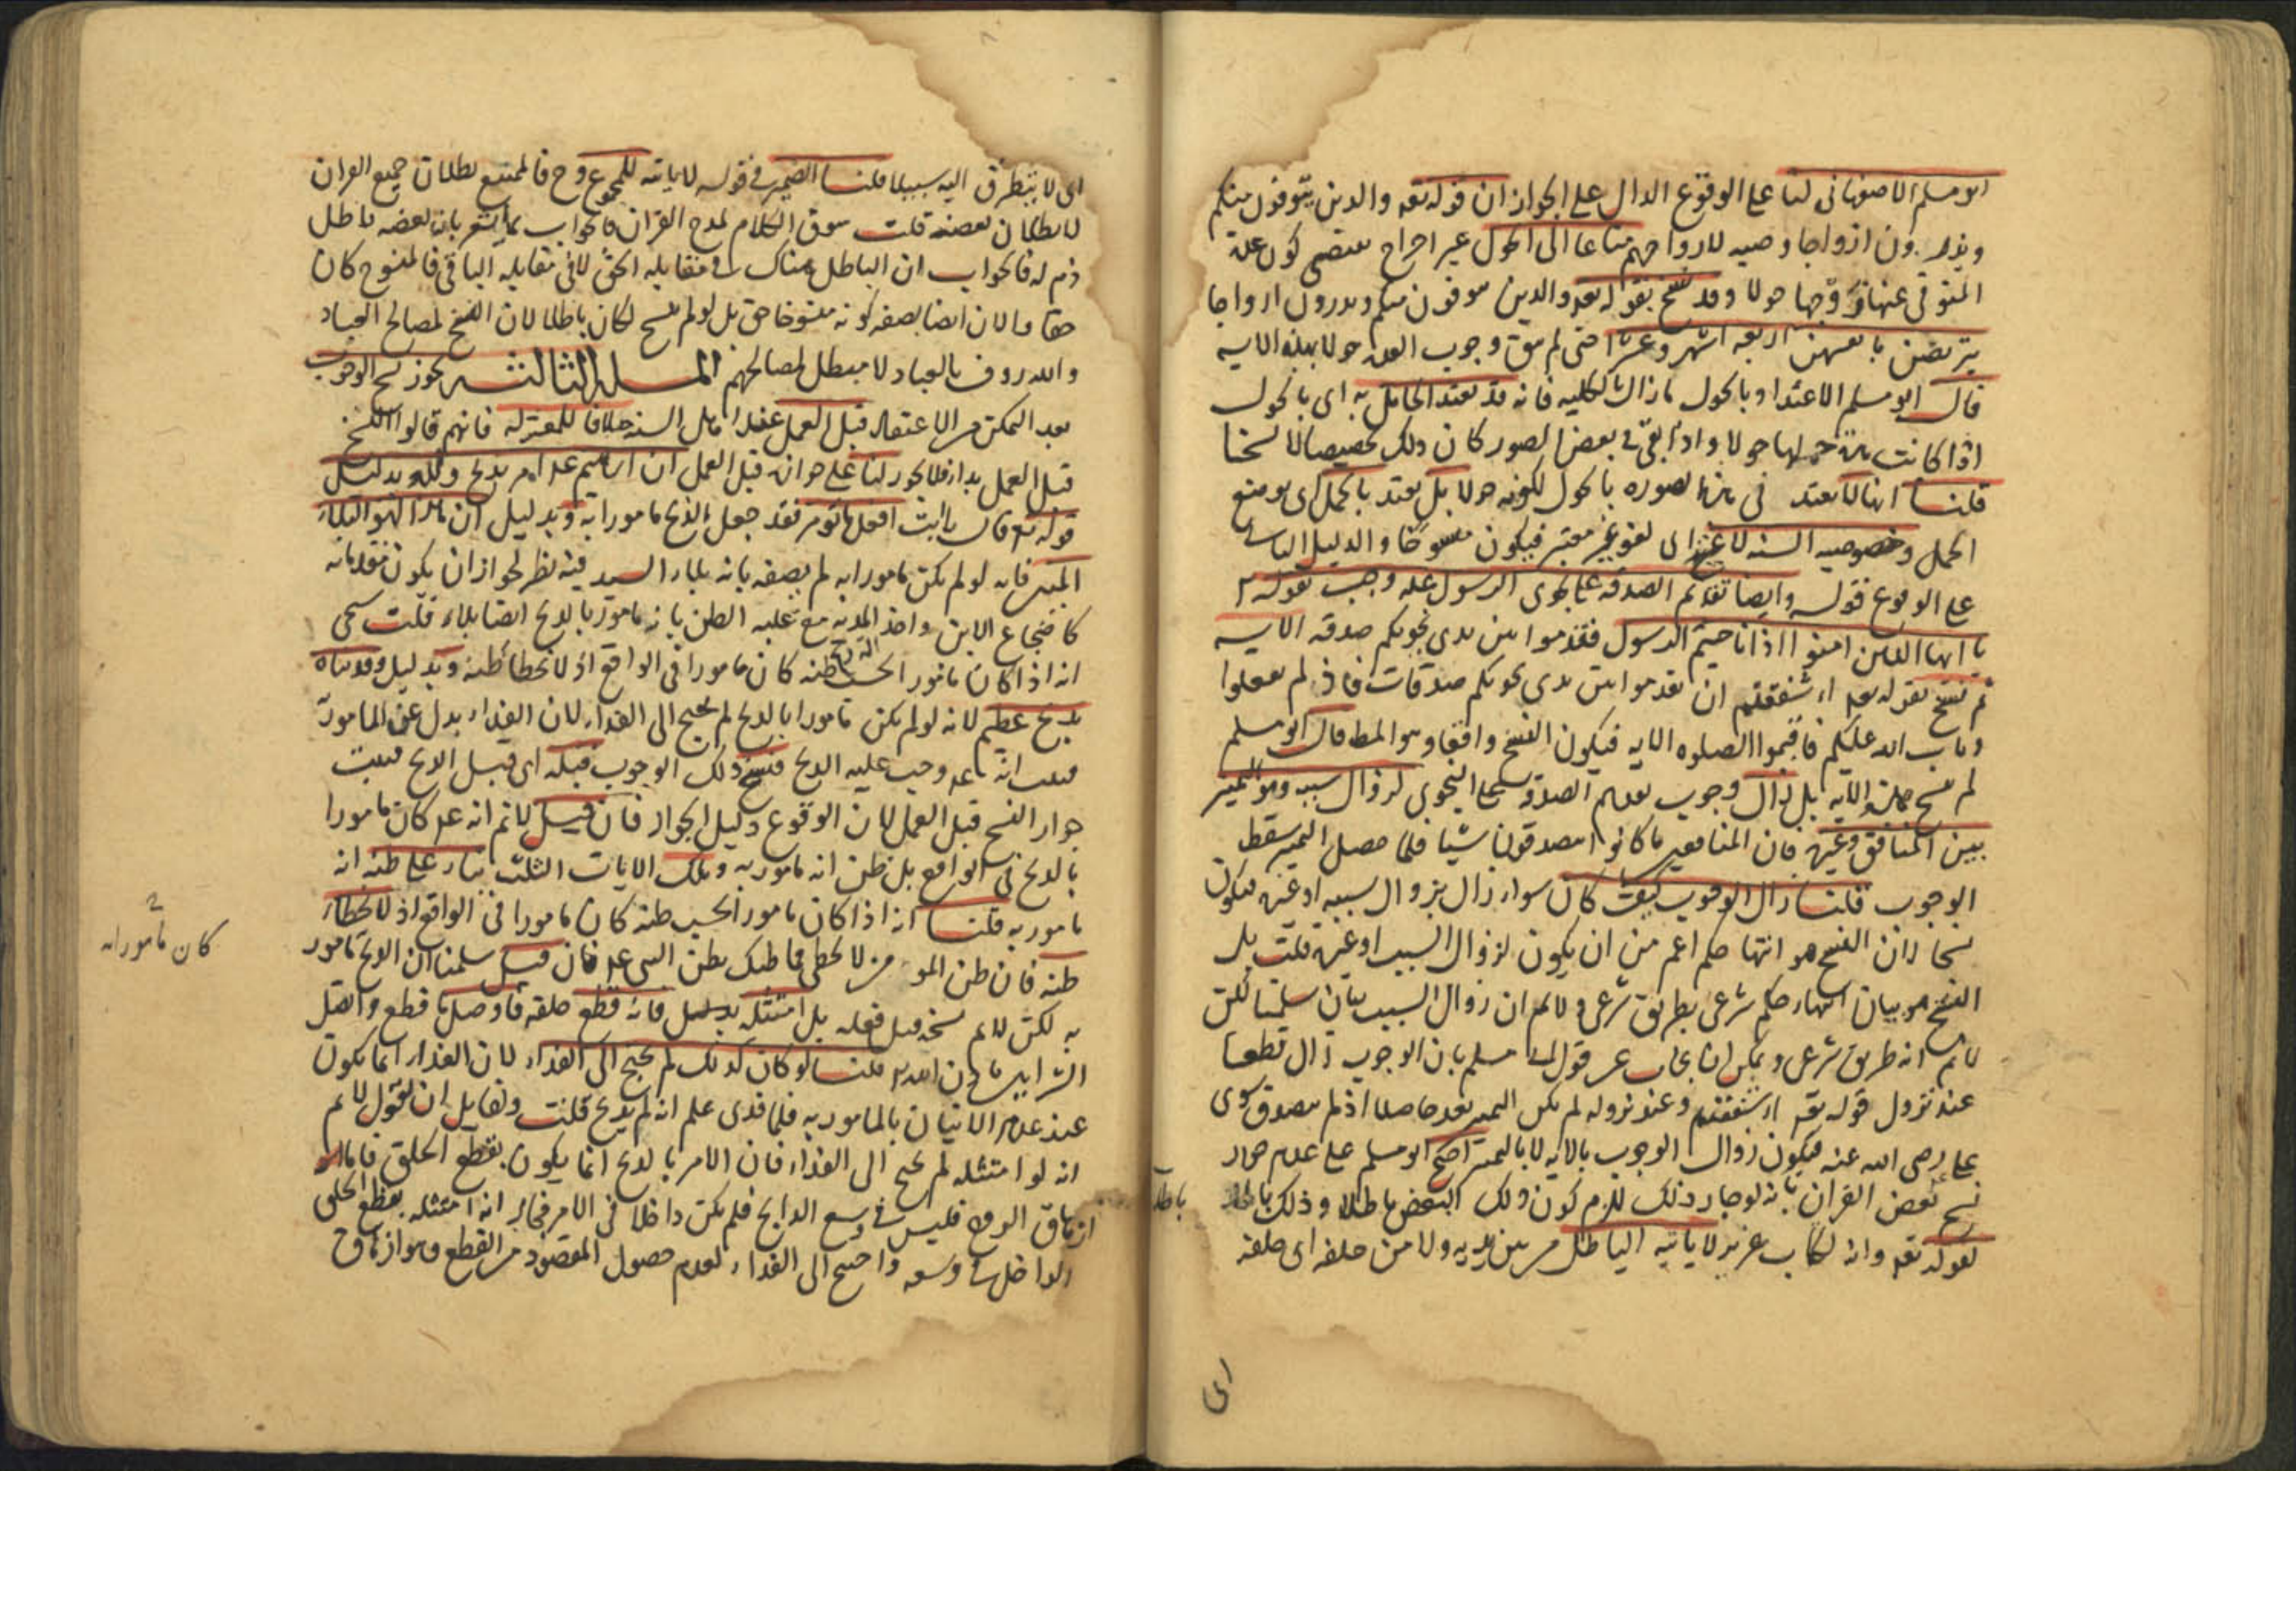 ابو مسلم الاصفهانى لنا على الوقوع الدال على الجواز ان قوله تعه والدين يتوفون منكم
ويذرون ازواجا وصيه لازواجهم متاعا الى الحول غير اخراج يقتضى كون عدة
المتوفى عنها زوجها حولا وقد نسخ بقوله تعه والدين يتوفون منكم ويذرون ازواجا
يتربصن بانفسهن اربعه اشهر وعشرا حتى لم يبق وجوب العده حولا بهذه الايه
قال ابو مسلم الاعتداد بالحول ما زال بالكليه فانه قد تعتد الحامل به اى بالحول
اذا كانت مدة حملها حولا واذا بقى فى بعض الصور كان ذلك تخصيصا لا نسخا
قلنا انها لا تعتد فى هذه الصوره بالحول لكونه حولا بل تعتد بالحمل اى بوضع
الحمل وخصوصيه السنه لاغيه اى لغو غير معتبر فيكون منسوخا والدليل الثانى
على الوقوع قوله وايضا تقديم الصدقه على نجوى الرسول عله وجب بقوله
يا ايها الدين امنوا اذا ناجيتم الرسول فقدموا بين يدى نجويكم صدقه الايه
ثم نسخ بقوله تعه ءاشفقتم ان تقدموا بين يدى نجويكم صدقات فاذ لم تفعلوا
وتاب الله عليكم فاقيموا الصلوه الايه فيكون النسخ واقعا وهو المط قال ابو مسلم
لم ينسخ هذه الايه بل زال وجوب تقديم الصدقه على النجوى لزوال سببه وهو التمييز
بين المنافق وغيره فان المنافقين ما كانوا يتصدقون شيا فلما حصل التميز سقط
الوجوب قلنا زال الوجوب كيف كان سواء زال بزوال سببه او غيره فيكون
نسخا لان النسخ هو انتها حكم اعم من ان يكون لزوال السبب او غيره قلت بل
النسخ هو بيان انتهاء حكم شرعى بطريق شرعى ولا نم ان زوال السبب بيان سلمنا لكن
لا نم انه طريق شرعى ويمكن ان يجاب عن قول ابى مسلم بان الوجوب زال قطعا
عند نزول قوله تعه ءاشفقتم وعند نزوله لم يكن التميز بعد حاصلا اذ لم يتصدق سوى
على رضى الله عنه فيكون زوال الوجوب بالايه لا بالتميز احتج ابو مسلم على عدم جواز
نسخ بعض القران بانه لو جاز ذلك للزم كون ذلك البعض باطلا وذلك باطل
لقوله تعه وانه لكتاب عزيز لا ياتيه الباطل من بين يديه ولا من خلفه اى خلفه
اى
اى لا يتطرق اليه سبيلا قلنا الضمير فى قوله لا ياتيه للمجموع وح فالممتنع بطلان جميع القران
لا بطلان بعضه قلت سوق الكلام لمدح القران فالجواب بما يشعر بان بعضه باطل
ذم له فالجواب ان الباطل هناك فى مقابله الحق لا فى مقابله الباقى فالمنسوخ كان
حقا والان ايضا بصفه كونه منسوخا حق بل لو لم ينسخ لكان باطلا لان النسخ لمصالح العباد
والله روف بالعباد لا مبطل لمصالحهم المسله الثالثه يجوز نسخ الوجوب
بعد التمكن من الاعتقاد قبل العمل عند اهل السنه خلافا للمعتزله فانهم قالوا النسخ
قبل العمل بداء فلا يجوز لنا على جوازه قبل العمل ان ابرهيم عله امر بذبح ولده بدليل
قوله تع قال يا ابت افعل ما تومر فقد جعل الذبح مامورا به وبدليل ان هذا لهو البلاء
المبين فانه لو لم يكن مامورا به لم يصفه بانه بلاء السيد فيه نظر لجواز ان يكون مقدماته
كاضجاع الابن واخذ المديه مع غلبه الظن بانه مامور بالذبح ايضا بلاء قلت سيجى
انه اذا كان مامورا بالذبح بحسب ظنه كان مامورا فى الواقع اذ لا يخطا ظنه وبدليل وفديناه
بذبح عظيم لانه لو لم يكن مامورا بالذبح لم يحتج الى الفداء لان الفداء بدل عن المامور به
فثبت انه عله وجب عليه الذبح فنسخ ذلك الوجوب قبله اى قبل الذبح فثبت
جواز النسخ قبل العمل لان الوقوع دليل الجواز فان قيل لا نم انه عله كان مامورا
بالذبح فى الواقع بل ظن انه مامور به وتلك الايات الثلث بناء على ظنه انه
مامور به قلنا انه اذا كان مامورا بحسب ظنه كان مامورا فى الواقع اذ لا يخطاء
ظنه فان ظن المومن لا يخطى فما ظنك بظن النبى عله فان قيل سلمنا ان الذبح مامور
به لكن لا نم نسخه قبل فعله بل امتثله بدليل فانه قطع حلقه فاوصل ما قطع واتصل
قلنا لو كان كذلك لم يحتج الى الفداء لان الفداء انما يكون
عند عدم الاتيان بالمامور به فلما فدى علم انه لم يذبح قلت ولقايل ان يقول لا نم
انه لو امتثله لم يحتج الى الفداء فان الامر بالذبح انما يكون بقطع الحلق فاما
ازهاق الروح فليس فى وسع الذابح فلم يكن داخلا فى الامر فجاز انه امتثله بقطع الحلق
الداخل فى وسعه واحتيج الى الفداء لعدم حصول المقصود من القطع وهو ازهاق
كان مامورا به